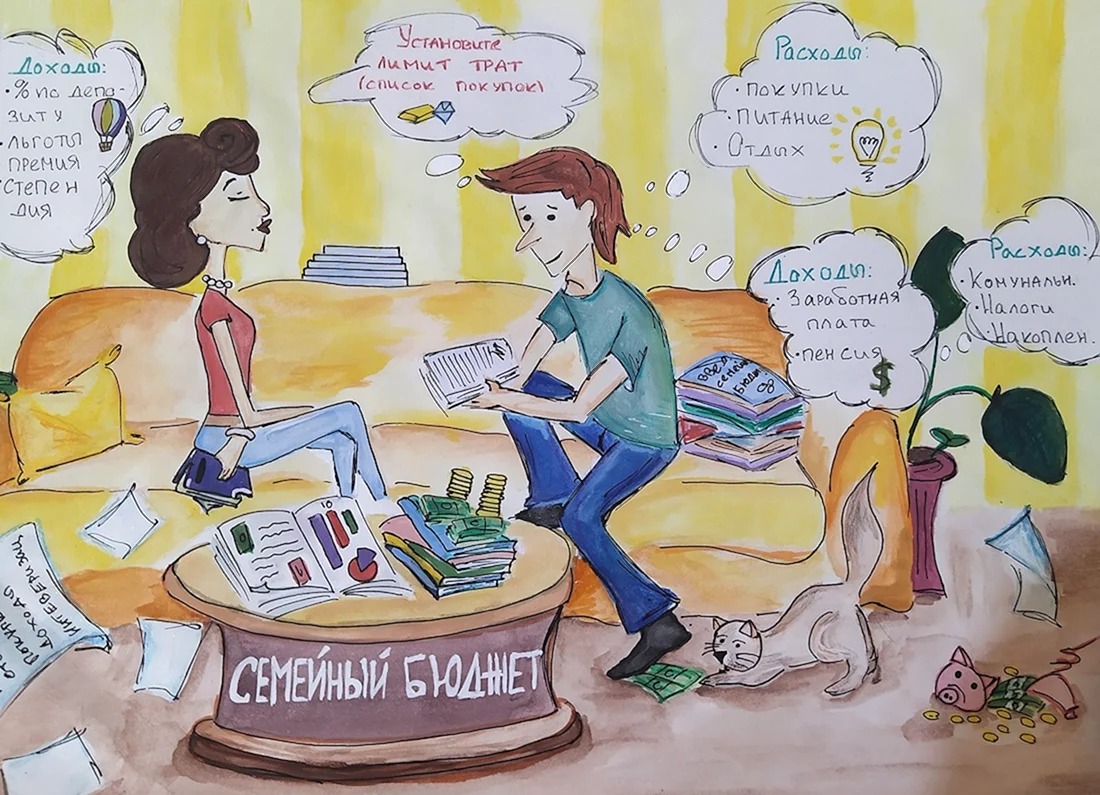 Доходы:
• % по депо-
зиту
• льготы
премия
• Степен
дия
Установите
лимит трат
(список покупок)
Расходы:
• покупки
• питание
• Отдых
Доходы:
• Заработная
плата
• пенсия
$
Расходы:
• Комунальн.
• Налоги
• Накоплен.
семей
бюдж
10
доходы
СЕМЕЙНЫЙ БЮДЖЕТ